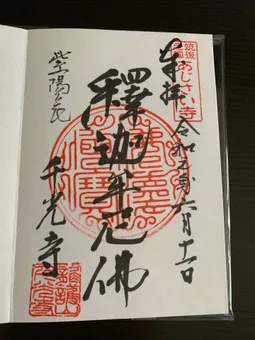 筑後
あじさい寺
奉拝 令和元年六月十一日
釋迦牟尼佛
紫陽花
千光寺
龍護山
千光寺